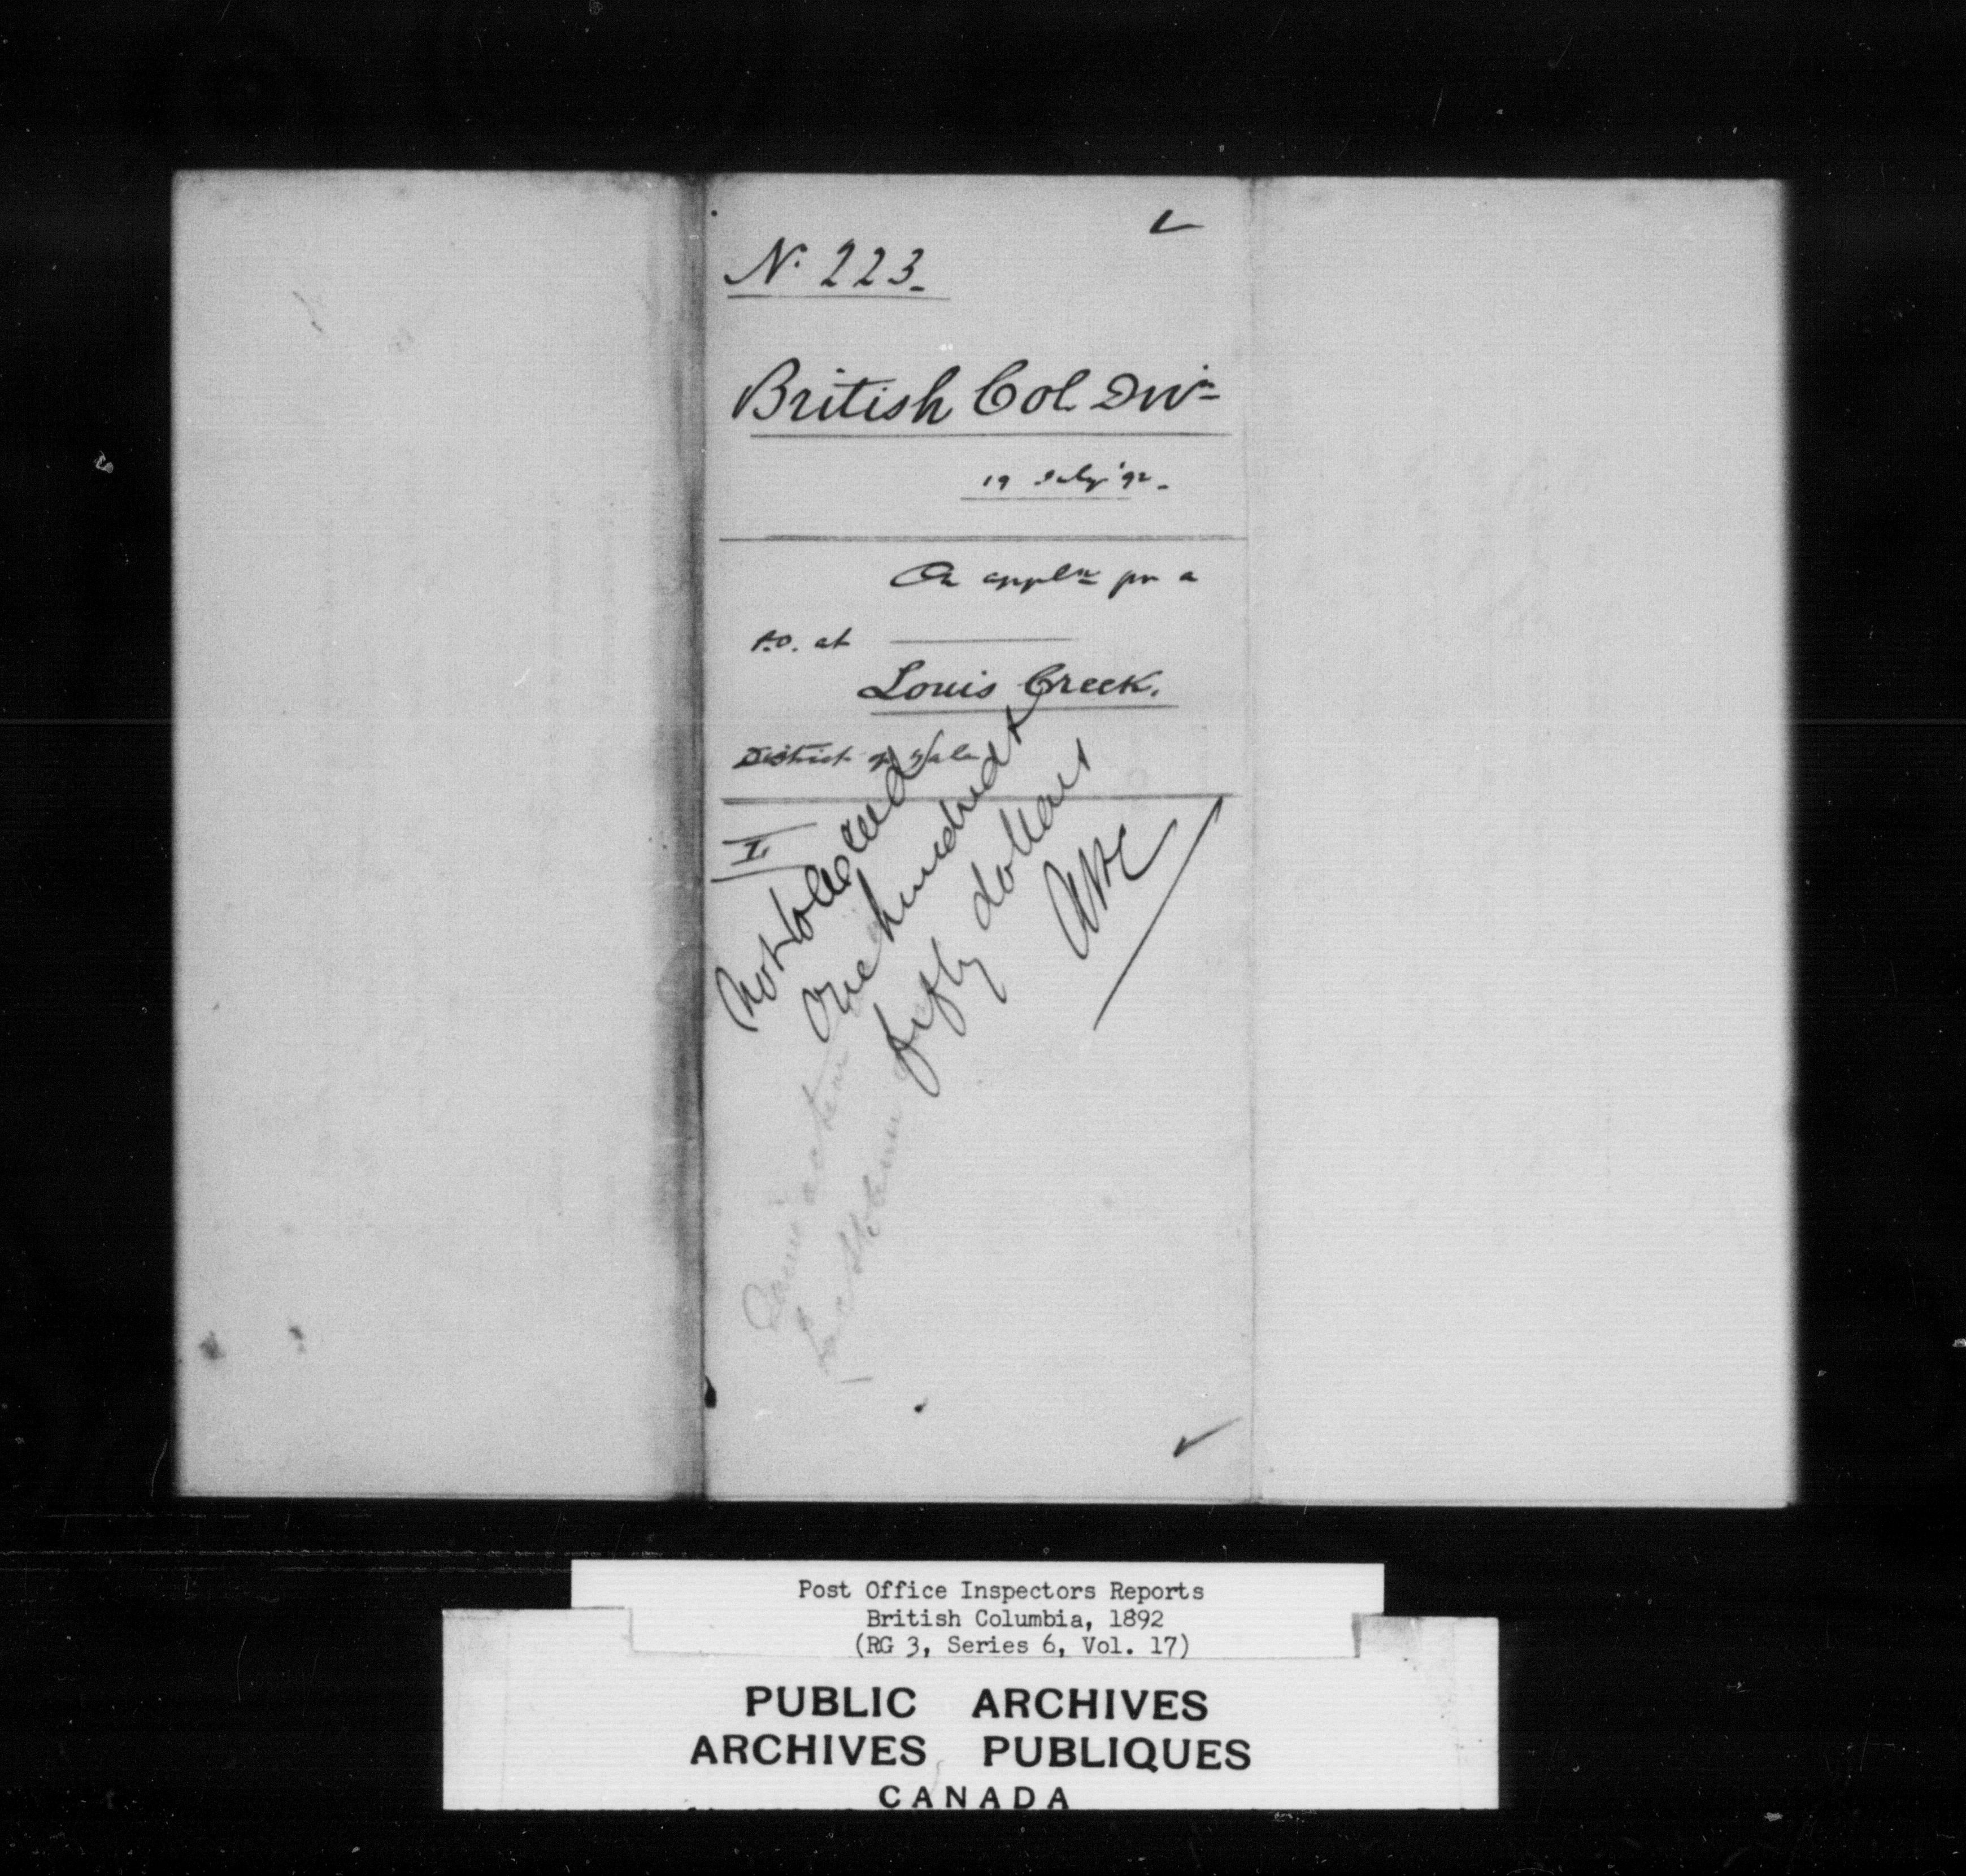 Nº 223.
British Col Divn
19 July '92.
On appln for a
P.O. at
Louis Creek.
District of Yale
I
Not to exceed
one hundred &
fifty dollars
Same
Post Office Inspectors Reports
British Columbia, 1892
(RG 3, Series 6, Vol. 17)
PUBLIC ARCHIVES
ARCHIVES PUBLIQUES
CANADA